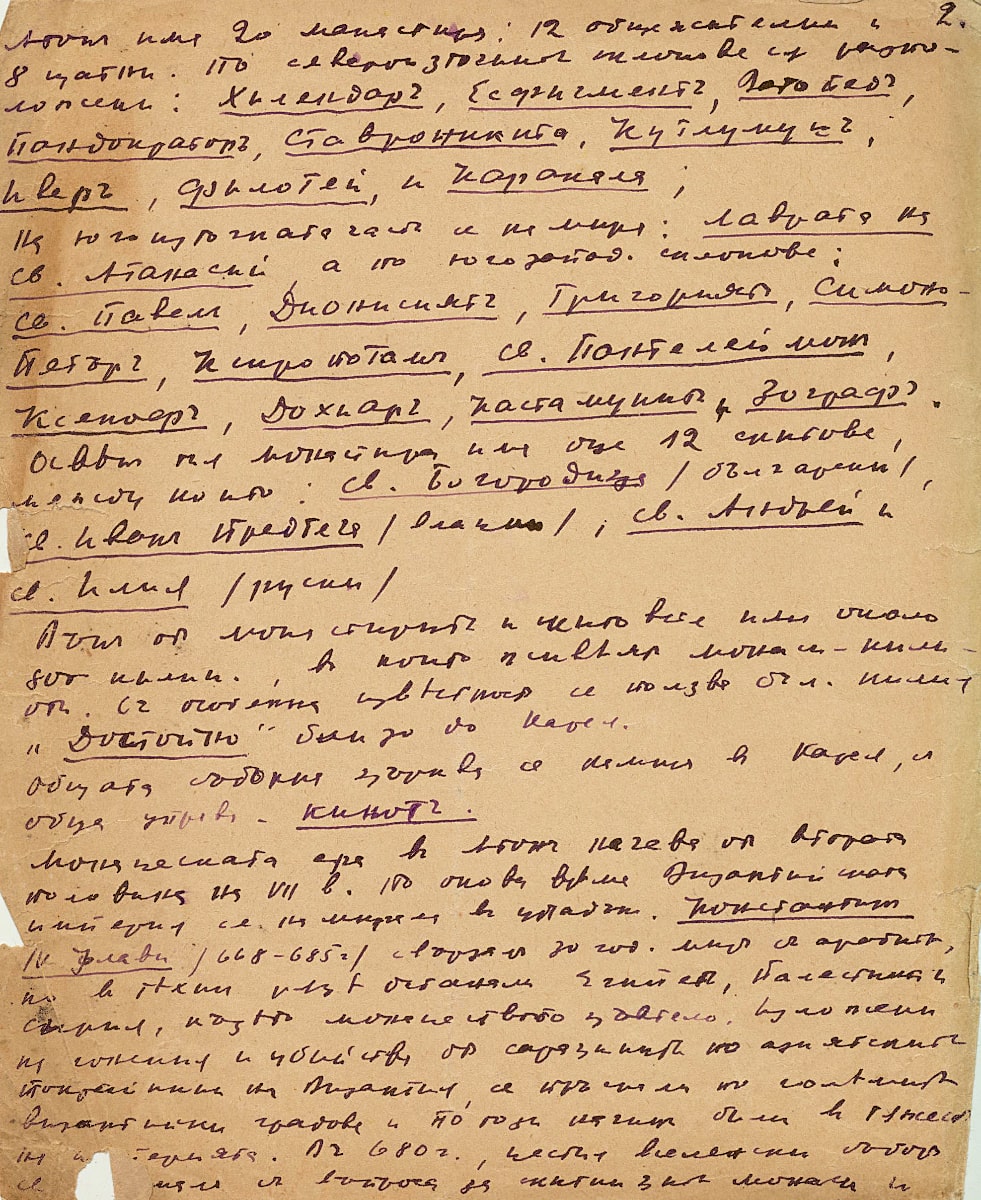 2.
Атонъ има 20 манастира: 12 общежителни и
8 щатни. По североизточният склонове су разпо-
ложени: Хилендаръ, Есфигментъ, Ватопедъ,
Пандократоръ, Ставроникита, Кутлумушъ,
Иверъ, Филотей, и Каракала;
На югоизточната часть се намира: Лаврата на
св. Атанасий, а по югозапад. склонове:
св. Павелъ, Дионисиятъ, Григориятъ, Симоно-
Петъръ, Ксиропотамъ, св. Пантелеймонъ,
Ксенофъ, Дохиаръ, Кастамунитъ, Зографъ.
Освѣнъ тия монастири има още 12 скитове,
между които: св. Богородица /български/,
св. Иванъ Предтеча /влашки/, св. Андрей и
св. Илия /руски/
Вънъ отъ монастиритѣ и скитовете има около
800 килии, въ които живѣятъ монаси-кили-
оти. Съ особенна извѣстность се ползва бълг. килия
„Достойно" близо до Карея.
Общата съборна църква се намира въ Карея, и
обща управа - Кинотъ.
Монашеската ера въ Атонъ начева отъ втората
половина на VII в. По онова врѣме Византийската
империя се намирала въ упадъкъ. Константинъ
IV /668-685г/ свързалъ 30 год. миръ съ арабитѣ,
но въ тѣхни рѫцѣ останали Египетъ, Палестина и
Сирия, където монашеството цъвтело. Изложени
на гонения и убийства отъ сарацинитѣ по азиятскитѣ
покрайнини на Византия, се пръснали по големитѣ
византийски градове и по този начинъ били въ тяжесть
на Въ 680 г., шестия вселенски соборъ
се съ въпроса за монаси и